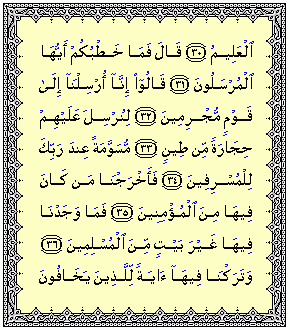 ٱلْعَلِيمُ ﴿٣٠﴾ قَالَ فَمَا خَطْبُكُمْ أَيُّهَا
ٱلْمُرْسَلُونَ ﴿٣١﴾ قَالُوٓا۟ إِنَّآ أُرْسِلْنَآ إِلَىٰ
قَوْمٍ مُّجْرِمِينَ ﴿٣٢﴾ لِنُرْسِلَ عَلَيْهِمْ
حِجَارَةً مِّن طِينٍ ﴿٣٣﴾ مُّسَوَّمَةً عِندَ رَبِّكَ
لِلْمُسْرِفِينَ ﴿٣٤﴾ فَأَخْرَجْنَا مَن كَانَ
فِيهَا مِنَ ٱلْمُؤْمِنِينَ ﴿٣٥﴾ فَمَا وَجَدْنَا
فِيهَا غَيْرَ بَيْتٍ مِّنَ ٱلْمُسْلِمِينَ ﴿٣٦﴾
وَتَرَكْنَا فِيهَآ ءَايَةً لِّلَّذِينَ يَخَافُونَ